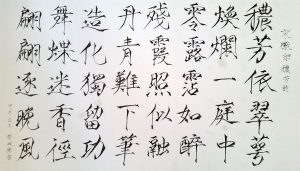 宋徽宗穠芳詩
穠芳依翠萼
煥爛一庭中
零露霑如醉
殘霞照似融
丹青難下筆
造化獨留功
舞蝶迷香徑
翩翩逐晚風